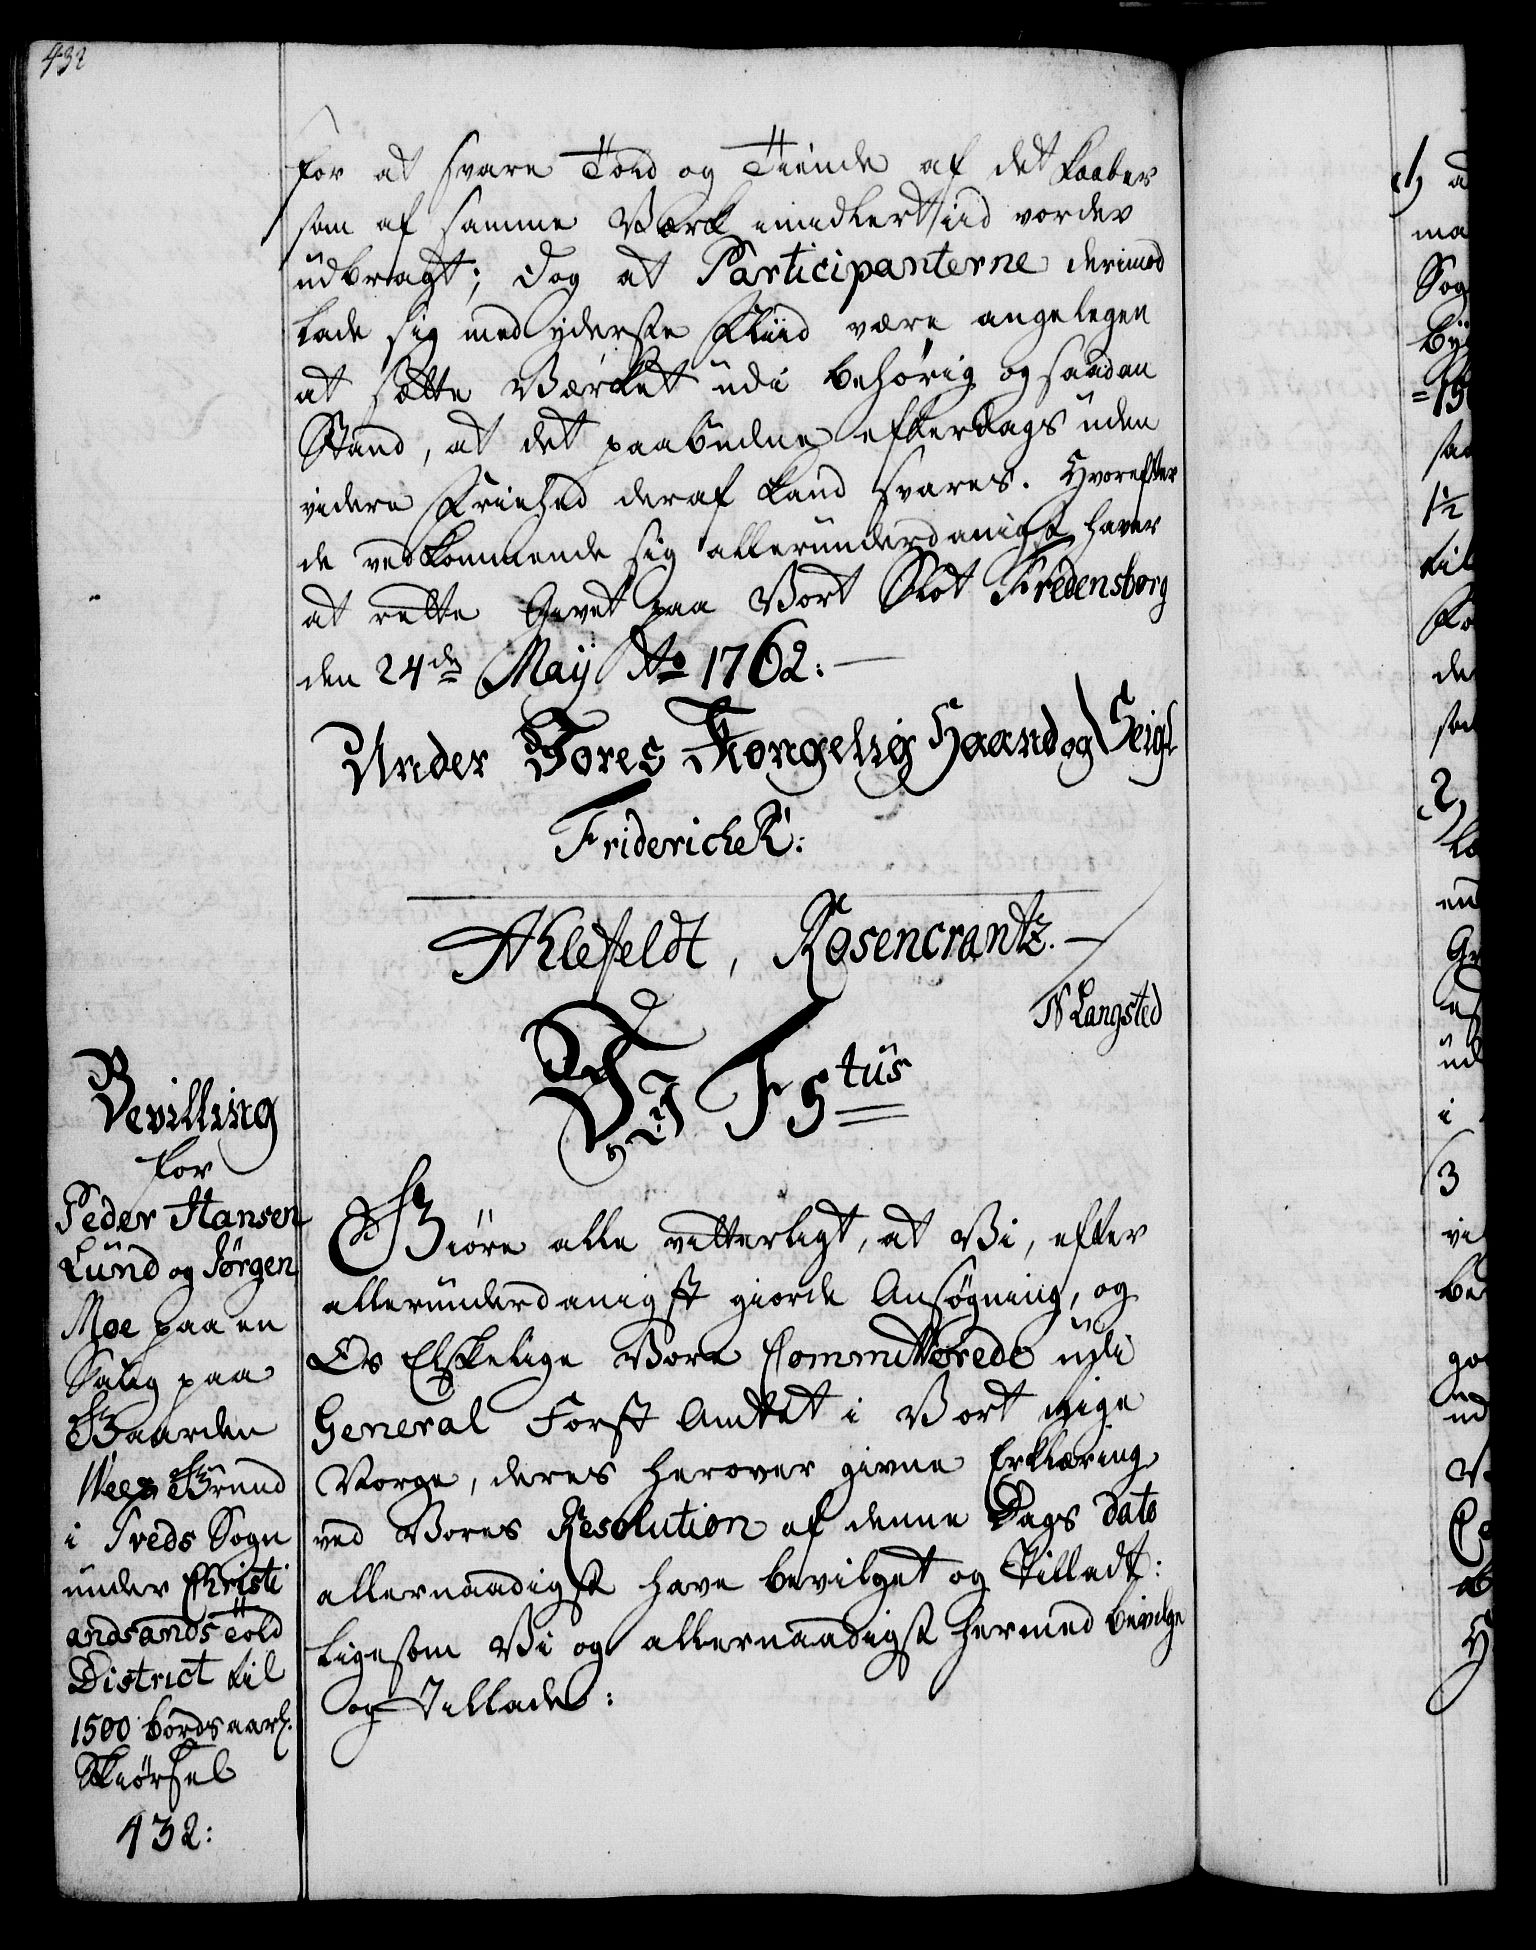 432
for at svare Told og Tiende af det Kaaber
som af samme Værk imidlertiid vorder
udbragt; dog at Participanterne derimod
lade sig med yderste Fliid være angelegen
at sætte Værket udi behörig og saadan
Stand, at det paabudne efterdags uden
videre Friehed deraf kand svares. Hvorefter
de vedkommende sig allerunderdanigst haver
at rette Givet paa Vort Slot Fredensborg
den 24de Maij Ao 1762:
Under Vores Kongelig Haand og Seigl
Friderich R:
Ahlefeldt, Rosencrantz.
N Langsted
Vi F 5tus
Bevilling
for
Peder Hansen
Lund og Jørgen
Moe paa en
Saug paa
Gaarden
Grund
i Treds Sogn
under Christi
andsands Told
District til
1500 bords aarl.
Skiørsel
432:
Giöre alle vitterligt, at Vi, efter
allerunderdanigst giorde Ansøgning, og
Os Elskelige Vore Committerede udi
General Forst Amtet i Vort rige
Norge, deres herover givne Erklæring
ved Vores Resolution af denne Dags dato
allernaadigst have bevilget og Tilladt:
ligesom Vi og allernaadigst hermed bevilge
og Tillade: